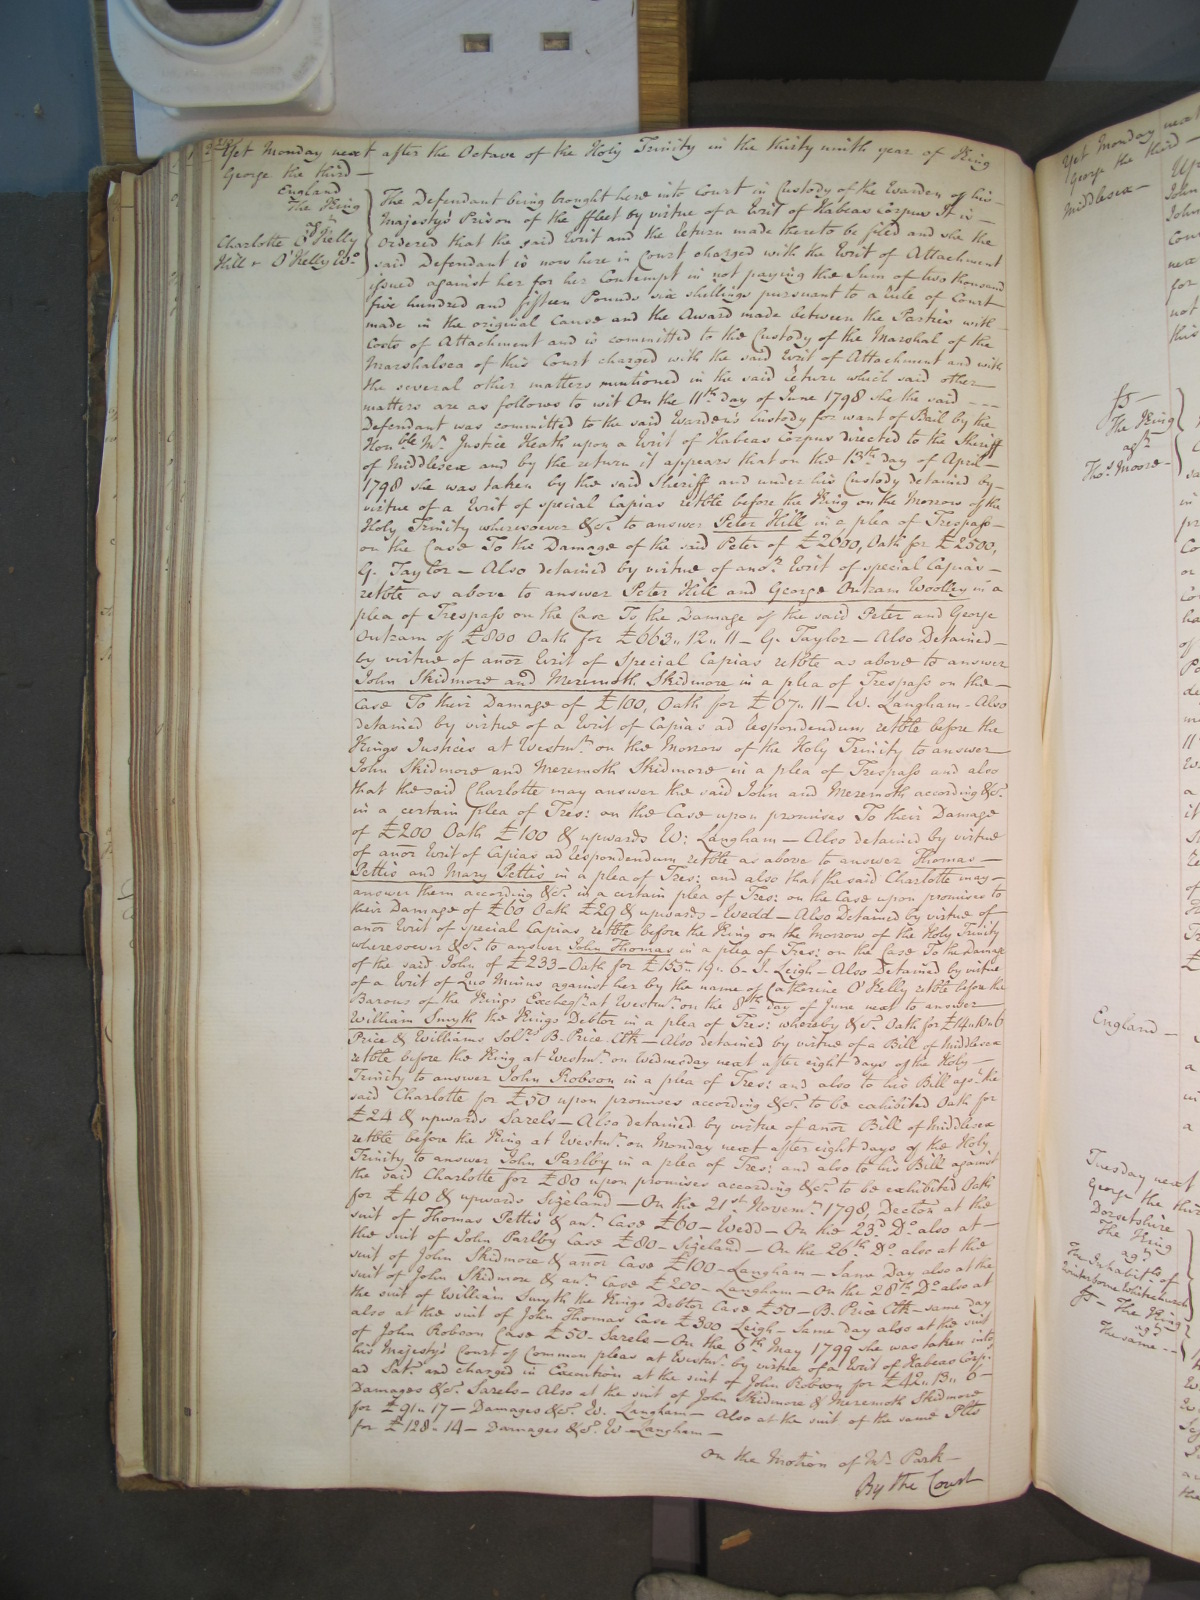 Yet Monday next after the Octave of the Holy Trinity in the thirty ninth year of King
George the third —
England
The King
agt
Charlotte O'Kelly
Hill v O'Kelly Wo.
The Defendant being brought here into Court in Custody of the Warden of his
Majesty's Prison of the ffleet by virtue of a Writ of Habeas Corpus It is
ordered that the said Writ and the Return made thereto be filed and she the
said Defendant is now here in Court charged with the Writ of Attachment
issued against her for her Contempt in not paying the Sum of two thousand
five hundred and fifteen Pounds six shillings pursuant to a Rule of Court
made in the original Cause and the Award made between the Parties with
Costs of Attachment and is committed to the Custody of the Marshal of the
Marshalsea of this Court charged with the said Writ of Attachment and with
the several other matters mentioned in the said return which said other
matters are as follows to wit On the 11th day of June 1798 she the said ---
Defendant was committed to the said Warden's Custody for want of Bail by the
Honble Mr. Justice Heath upon a Writ of Habeas Corpus directed to the Sheriff
of Middlesex and by the return it appears that on the 13th day of April
1798 she was taken by the said Sheriff and under his Custody detained by
virtue of a Writ of special Capias retble before the King on the Morrow of the
Holy Trinity wheresoever &c. to answer Peter Hill in a plea of Trespass
on the Case To the Damage of the said Peter of £2000, Oath for £2500,
G. Taylor — Also detained by virtue of anor. Writ of special Capias —
retble as above to answer Peter Hill and George Outram Woolley in a
plea of Trespass on the Case To the Damage of the said Peter and George
Outram of £800 Oath for £663 „ 12 „ 11 — G. Taylor — Also Detained —
by virtue of anor Writ of Special Capias retble as above to answer
John Skidmore and Meremoth Skidmore in a plea of Trespass on the
Case To their Damage of £100, Oath for £67 „ 11 — W. Langham — Also
detained by virtue of a Writ of Capias ad Respondendum, retble before the
Kings Justices at Westmr. on the Morrow of the Holy Trinity to answer
John Skidmore and Meremoth Skidmore in a plea of Trespass and also
that the said Charlotte may answer the said John and Meremoth according &c.
in a certain plea of Tres: on the Case upon promises To their Damage
of £200 Oath £100 & upwards W: Langham — Also detained by virtue
of anor Writ of Capias ad Respondendum retble as above to answer Thomas —
Pettis and Mary Pettis in a plea of Tres: and also that the said Charlotte may
answer them according &c. in a certain plea of Tres: on the Case upon promises to
their Damage of £60 Oath £29 & upwards — Wedd — Also Detained by virtue of
anor Writ of Special Capias retble before the King on the Morrow of the Holy Trinity
wheresoever &c. to answer John Thomas in a plea of Tres: on the Case To the Damage
of the said John of £233 — Oath for £155 „ 19 „ 6 — J. Leigh — Also Detained by virtue
of a Writ of Quo Minus against her by the name of Catherine O'Kelly retble before the
Barons of the Kings Excheqr. at Westmr. on the 8th day of June next to answer
William Smyth the Kings Debtor in a plea of Tres: whereby &c. Oath for £14 „ 10 „ 6
Price & Williams Solrs. B. Price Clk — Also detained by virtue of a Bill of Middlesex
retble before the King at Westmr. on Wednesday next after eight days of the Holy —
Trinity to answer John Robson in a plea of Tres: and also to his Bill agst. the
said Charlotte for £50 upon promises according &c. to be exhibited Oath for
£24 & upwards Sarels — Also detained by virtue of anor Bill of Middlesex
retble before the King at Westmr. on Monday next after eight days of the Holy
Trinity to answer John Parlby in a plea of Tres: and also to his Bill against
the said Charlotte for £80 upon promises according &c. to be exhibited Oath
for £40 & upwards Sizeland — On the 21st Novemr. 1798, Decton at the
suit of Thomas Pettis & anr. Case £60 — Wedd — On the 23d. Do. also at —
the suit of John Parlby Case £80 — Sizeland — On the 26th Do. also at the
suit of John Skidmore & anor Case £100 — Langham — Same Day also at the
suit of John Skidmore & anr. Case £200 — Langham — On the 28th Do. also at
the suit of William Smyth the Kings Debtor Case £50 — B. Price Clk — same day
also at the suit of John Thomas Case £300 Leigh — Same day also at the suit
of John Robson Case £50 — Sarels — On the 6th May 1799 she was taken into
his Majesty's Court of Common pleas at Westmr. by virtue of a Writ of Habeas Corp:
ad Sat. and charged in Execution at the suit of John Robson for £42 „ 13 „ 6 —
Damages &c. Sarels — Also at the suit of John Skidmore & Meremoth Skidmore
for £91 „ 17 — Damages &c. W. Langham — Also at the suit of the same Plts
for £128 „ 14 — Damages &c. W — Langham —
On the Motion of Mr. Park —
By the Court
Yet Monday next
George the third —
Middlesex —
The King
agt
Thos. Moore —
England —
Tuesday next
George the thir
Dorsetshire
The King
agt
The Inhabitts of
Winterborne Whitechurch
The King
agt
The same —